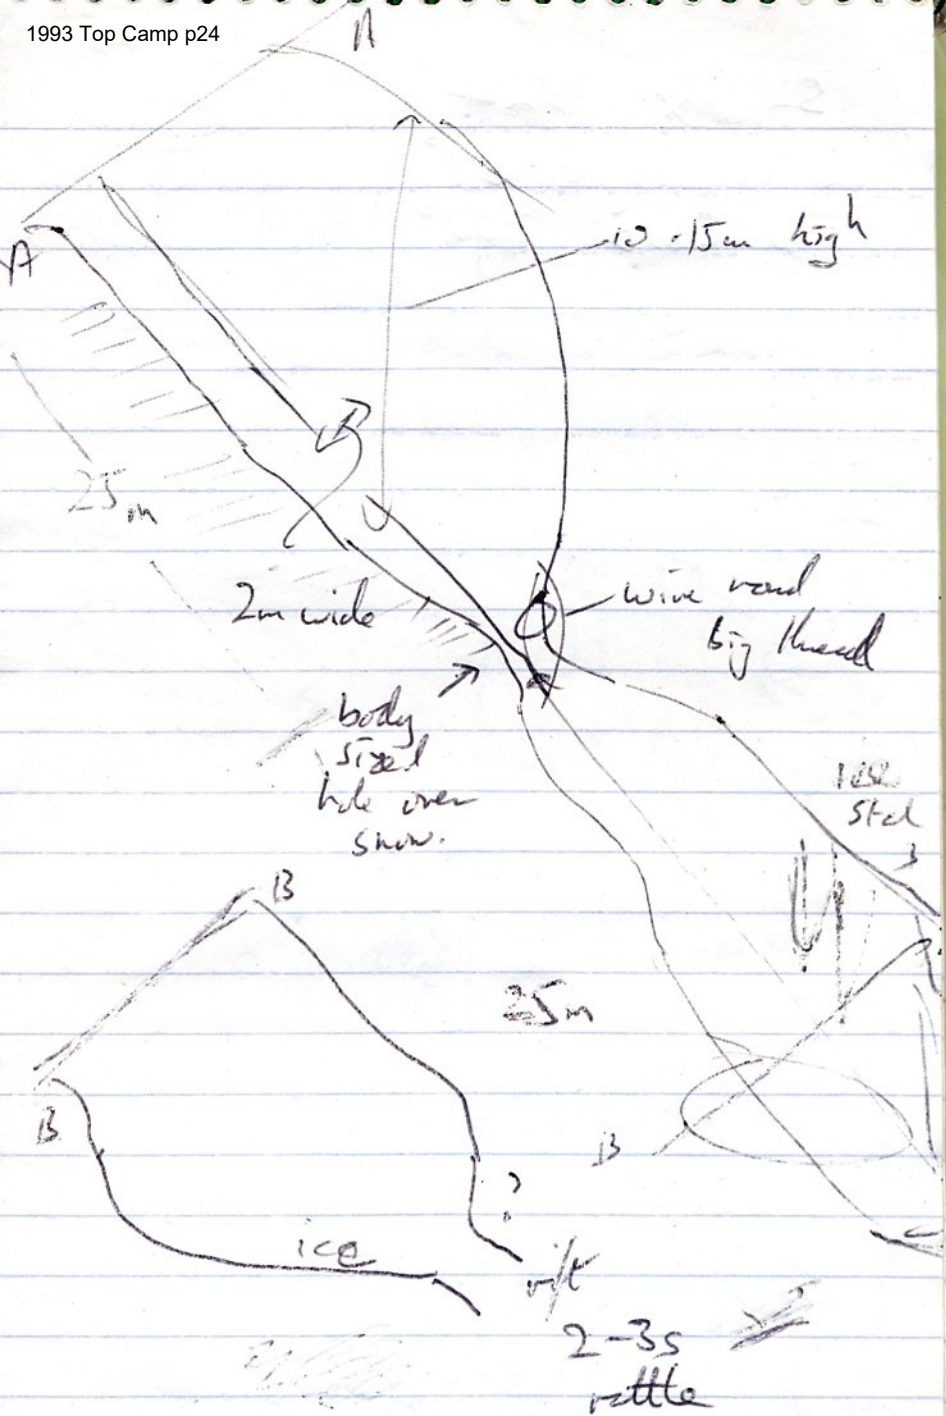 1993 Top Camp p24
A
A
10-15m high
25m
2m wide
wire round
big thread
body
sized
hole over
snow.
B
B
25m
B
?
ice
rift
2-3s
rattle